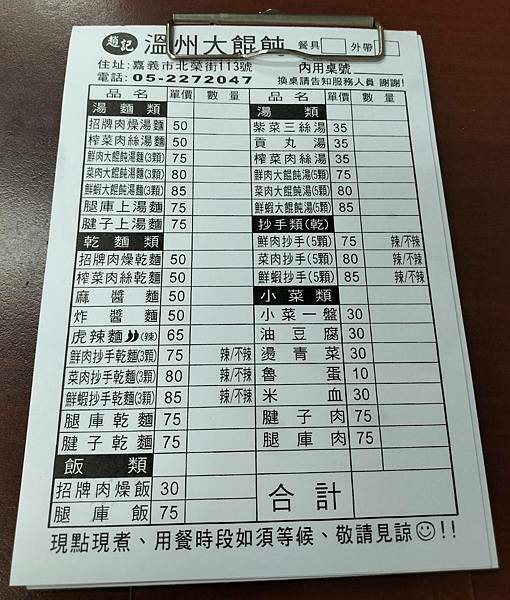 趙記 溫州大餛飩 餐具 外帶
住址:嘉義市北榮街113號 內用桌號
電話:05-2272047 換桌請告知服務人員 謝謝!
品名 單價 數量
湯麵類
招牌肉燥湯麵 50
榨菜肉絲湯麵 50
鮮肉大餛飩湯麵(3顆) 75
菜肉大餛飩湯麵(3顆) 80
鮮蝦大餛飩湯麵(3顆) 85
腿庫上湯麵 75
腱子上湯麵 75
乾麵類
招牌肉燥乾麵 50
榨菜肉絲乾麵 50
麻醬麵 50
炸醬麵 50
虎辣麵(辣) 65
鮮肉抄手乾麵(3顆) 75 辣/不辣
菜肉抄手乾麵(3顆) 80 辣/不辣
鮮蝦抄手乾麵(3顆) 85 辣/不辣
腿庫乾麵 75
腱子乾麵 75
飯類
招牌肉燥飯 30
腿庫飯 75
品名 單價 數量
湯類
紫菜三絲湯 35
貢丸湯 35
榨菜肉絲湯 35
鮮肉大餛飩湯(5顆) 75
菜肉大餛飩湯(5顆) 80
鮮蝦大餛飩湯(5顆) 85
抄手類(乾)
鮮肉抄手(5顆) 75 辣/不辣
菜肉抄手(5顆) 80 辣/不辣
鮮蝦抄手(5顆) 85 辣/不辣
小菜類
小菜一盤 30
油豆腐 30
燙青菜 30
魯蛋 10
米血 30
腱子肉 75
腿庫肉 75
合計
現點現煮、用餐時段如須等候、敬請見諒☺!!